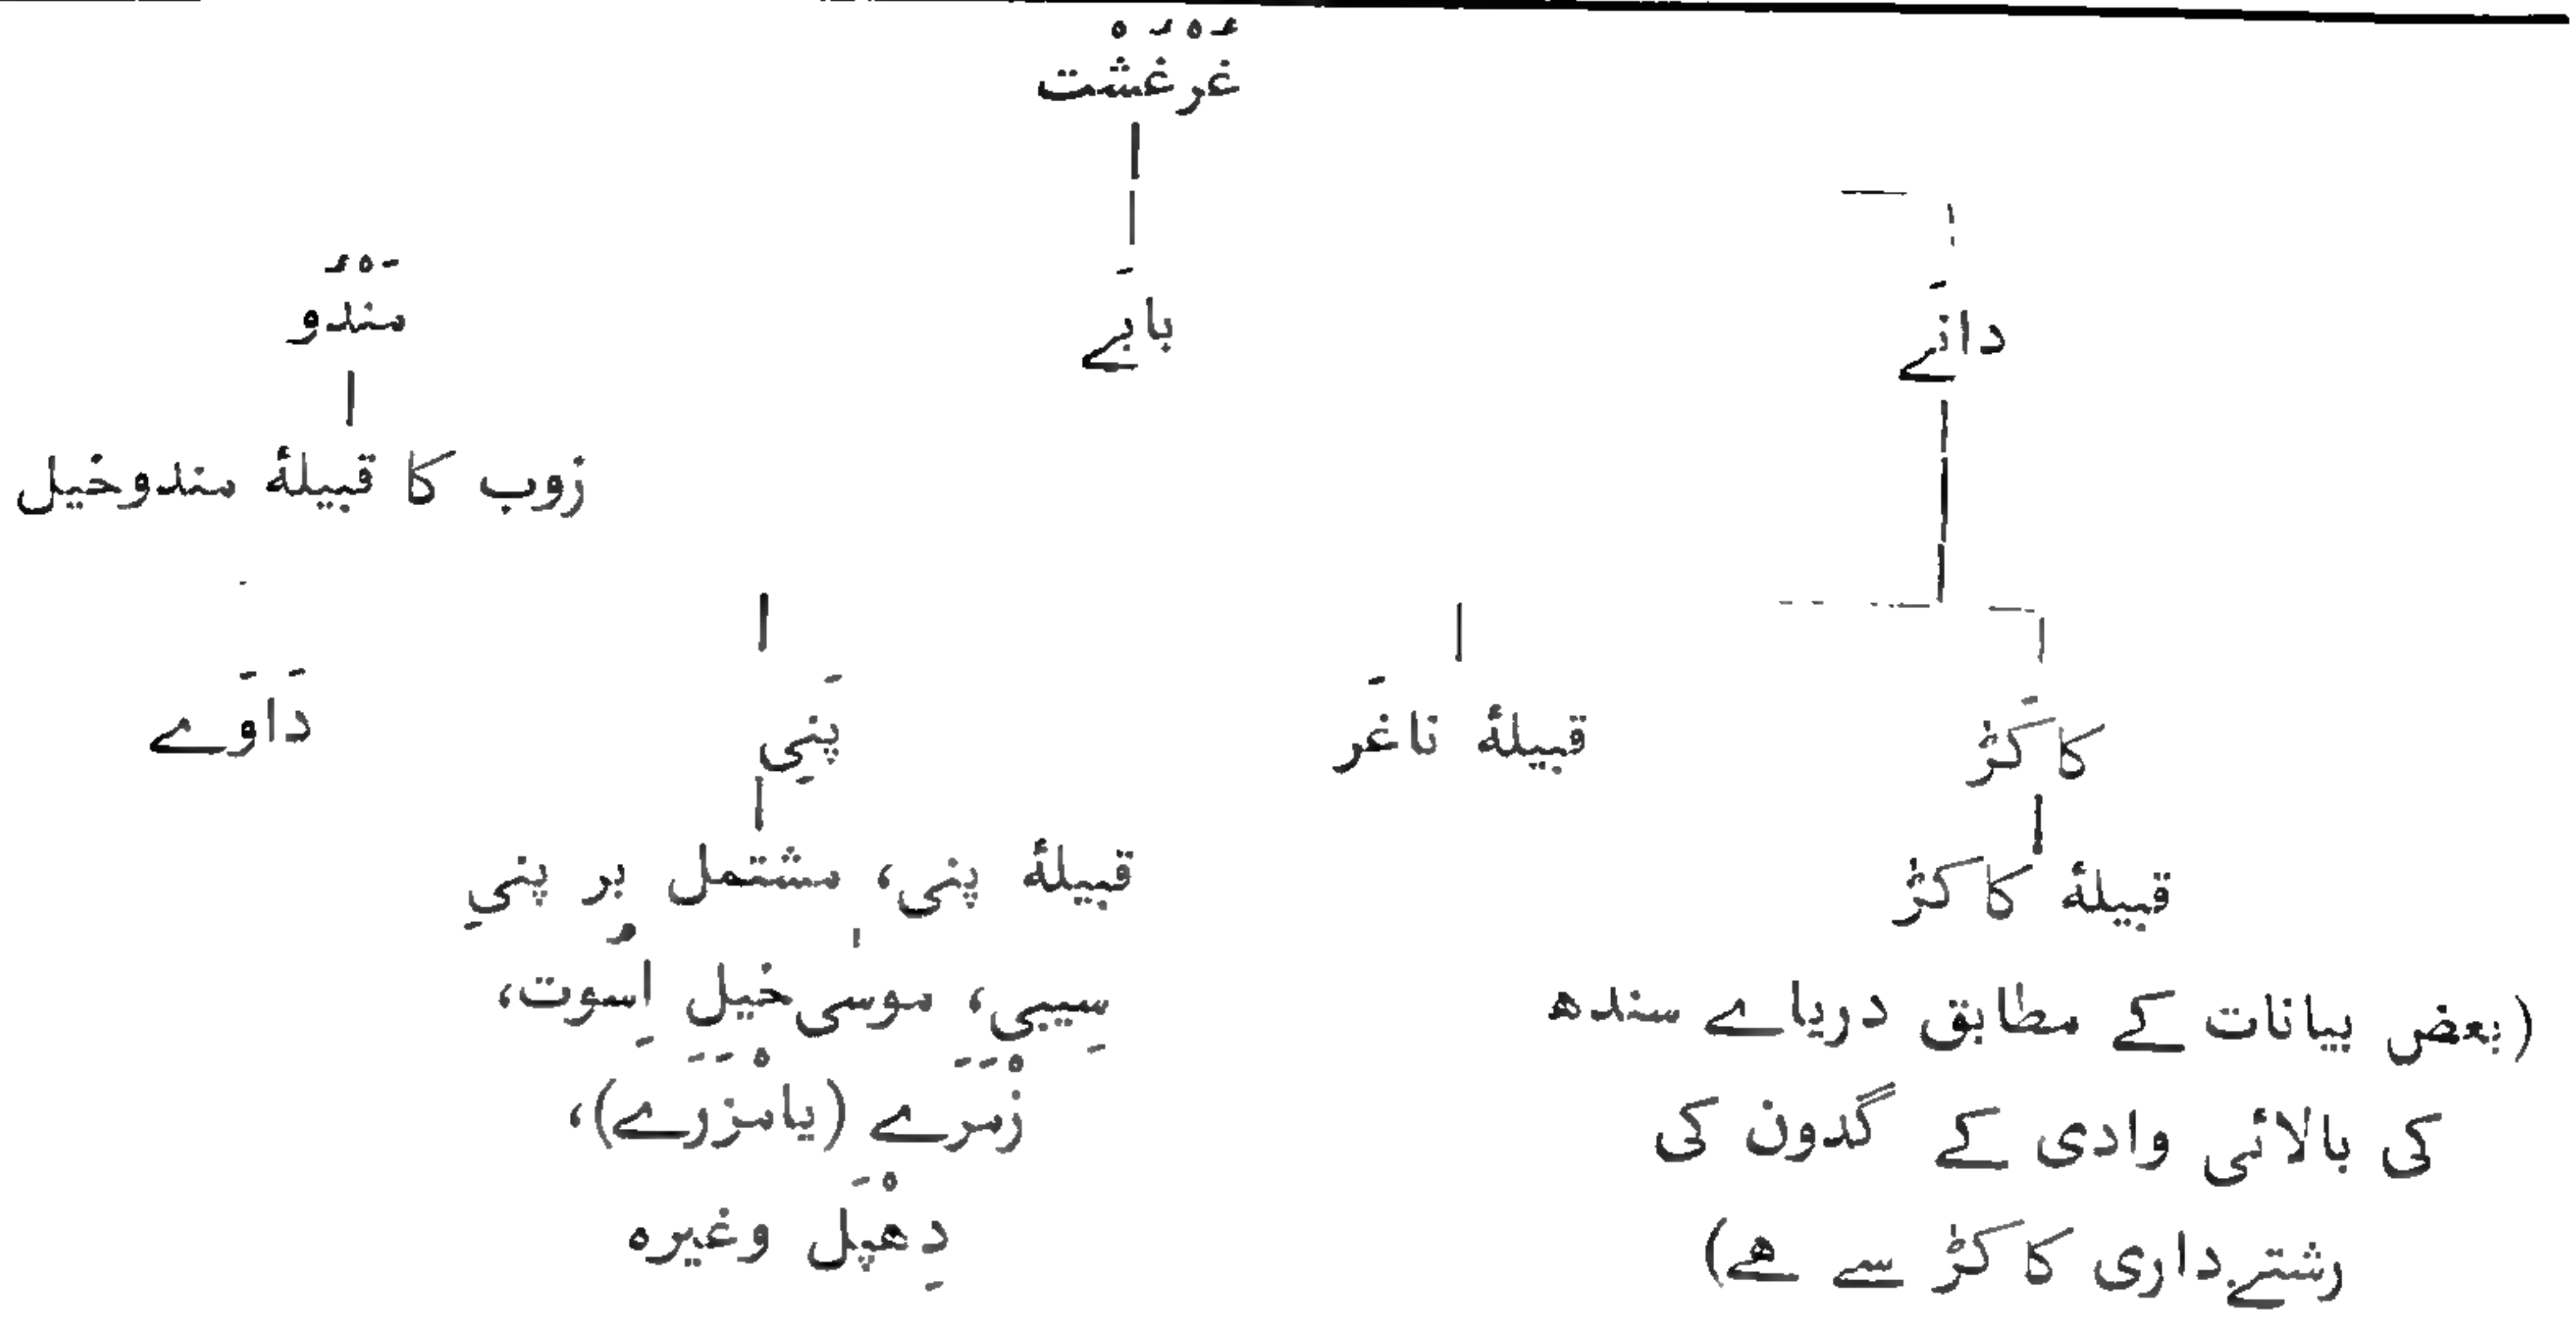 غُرْغُشْت
دانَے
بابَے
مَنْدُو
زوب کا قبیلۂ مندوخیل
کاکَڑ
قبیلۂ ناغَر
پَنِی
دَاوَے
قبیلۂ کاکڑ
(بعض بیانات کے مطابق دریاے سندھ
کی بالائی وادی کے گدون کی
رشتےداری کاکڑ سے ھے)
قبیلۂ پنی، مشتمل بر پنیِ
سِیبی، موسیٰ خیل اِسُوت،
زْمَرَے (یا مْزَرَے)،
دِھْپَل وغیرہ